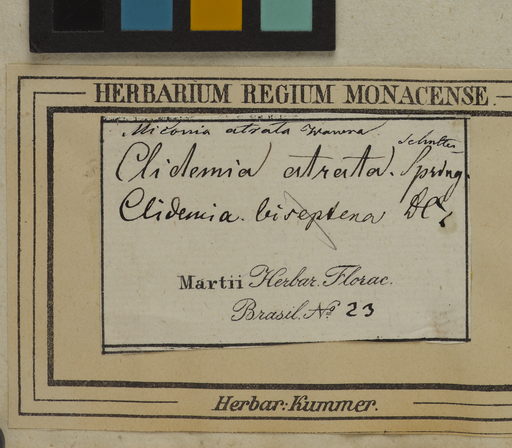 HERBARIUM REGIUM MONACENSE.
Miconia atrata Wawra
Schultes
Clidemia atrata. Spring.
Clidemia. biseptena DC.
Martii Herbar. Florae.
Brasil. No 23
Herbar: Kummer.